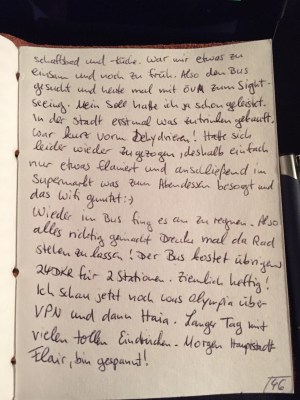 schaftsbad und -küche. War mir etwas zu
einsam und noch zu früh. Also den Bus
gesucht und heute mal mit ÖVM zum Sight-
seeing. Mein Soll hatte ich ja schon geleistet.
In der Stadt erstmal was zutrinken gekauft.
War kurz vorm Dehydrieren! Hatte sich
leider wieder zugezogen, deshalb einfach
nur etwas flaniert und anschließend im
Supermarkt was zum Abendessen besorgt und
das Wifi genutzt :)
Wieder im Bus fing es an zu regnen. Also
alles richtig gemacht das Rad
stehen zu lassen! Der Bus kostet übrigens
24 DKR für 2 Stationen. Ziemlich heftig!
Ich schau jetzt noch was Olympia über
VPN und dann Haia. Langer Tag mit
vielen tollen Eindrücken. Morgen Hauptstadt
Flair, bin gespannt!
146